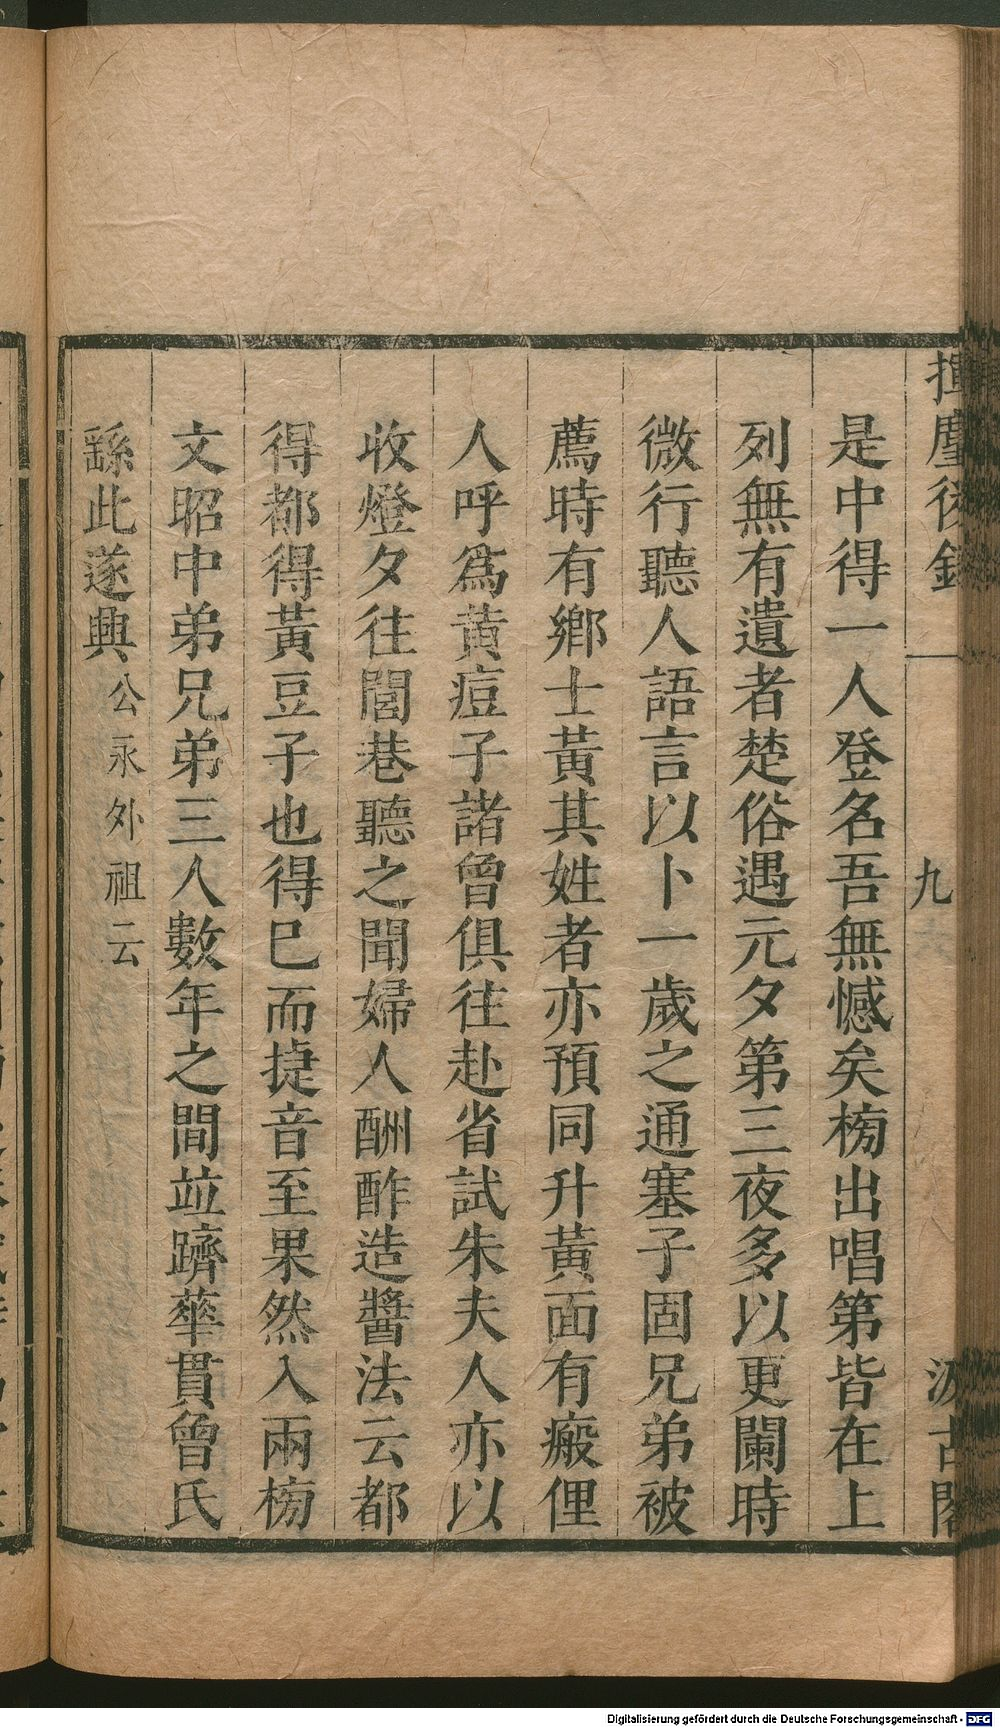 揮麈後錄
九
汲古閣
是中得一人登名吾無憾矣榜出唱第皆在上
列無有遺者楚俗遇元夕第三夜多以更闌時
微行聽人語言以卜一歲之通塞子固兄弟被
薦時有鄉士黃其姓者亦預同升黃面有瘢俚
人呼爲黃痘子諸曾俱往赴省試朱夫人亦以
收燈夕往閭巷聽之聞婦人酬酢造醬法云都
得都得黃豆子也得巳而捷音至果然入兩榜
文昭中弟兄弟三人數年之間竝躋華貫曾氏
繇此遂興公永外祖云
Digitalisierung gefördert durch die Deutsche Forschungsgemeinschaft - DFG